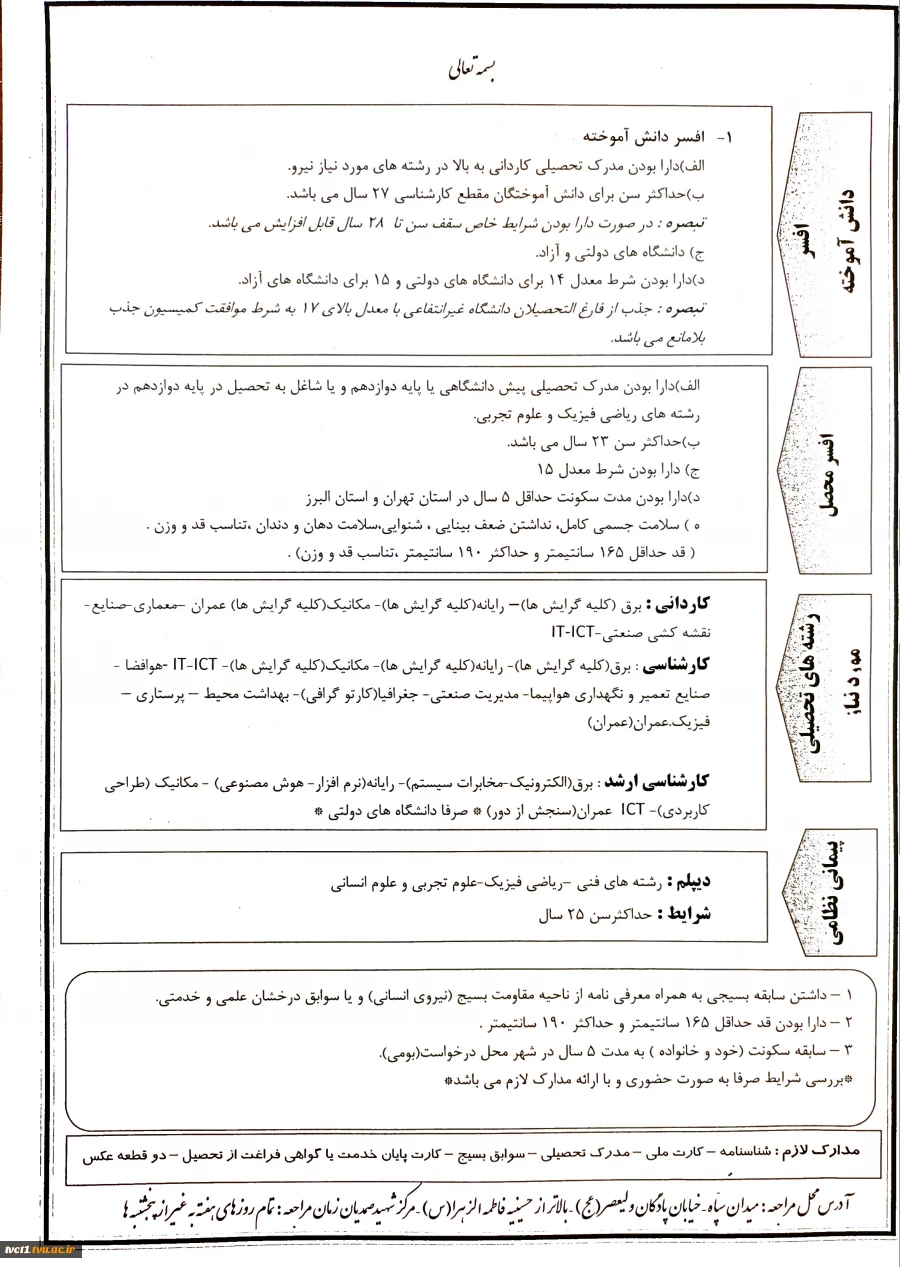 بسمه تعالی
دانش آموخته
افسر
۱- افسر دانش آموخته
الف)دارا بودن مدرک تحصیلی کاردانی به بالا در رشته های مورد نیاز نیرو.
ب)حداکثر سن برای دانش آموختگان مقطع کارشناسی ۲۷ سال می باشد.
تبصره : در صورت دارا بودن شرایط خاص سقف سن تا ۲۸ سال قابل افزایش می باشد.
ج) دانشگاه های دولتی و آزاد.
د)دارا بودن شرط معدل ۱۴ برای دانشگاه های دولتی و ۱۵ برای دانشگاه های آزاد.
تبصره : جذب از فارغ التحصیلان دانشگاه غیرانتفاعی با معدل بالای ۱۷ به شرط موافقت کمیسیون جذب
بلامانع می باشد.
افسر محصل
الف)دارا بودن مدرک تحصیلی پیش دانشگاهی یا پایه دوازدهم و یا شاغل به تحصیل در پایه دوازدهم در
رشته های ریاضی فیزیک و علوم تجربی.
ب)حداکثر سن ۲۳ سال می باشد.
ج) دارا بودن شرط معدل ۱۵
د)دارا بودن مدت سکونت حداقل ۵ سال در استان تهران و استان البرز
ه ) سلامت جسمی کامل، نداشتن ضعف بینایی ، شنوایی،سلامت دهان و دندان ،تناسب قد و وزن .
( قد حداقل ۱۶۵ سانتیمتر و حداکثر ۱۹۰ سانتیمتر ،تناسب قد و وزن) .
مورد نیاز
رشته های تحصیلی
کاردانی : برق (کلیه گرایش ها)– رایانه(کلیه گرایش ها)- مکانیک(کلیه گرایش ها) عمران –معماری-صنایع-
نقشه کشی صنعتی-IT-ICT
کارشناسی : برق(کلیه گرایش ها)- رایانه(کلیه گرایش ها)- مکانیک(کلیه گرایش ها)- IT-ICT -هوافضا -
صنایع تعمیر و نگهداری هواپیما- مدیریت صنعتی- جغرافیا(کارتو گرافی)- بهداشت محیط – پرستاری –
فیزیک.عمران(عمران)
کارشناسی ارشد : برق(الکترونیک-مخابرات سیستم)- رایانه(نرم افزار- هوش مصنوعی) - مکانیک (طراحی
کاربردی)- ICT عمران(سنجش از دور) * صرفا دانشگاه های دولتی *
پیمانی نظامی
دیپلم : رشته های فنی –ریاضی فیزیک-علوم تجربی و علوم انسانی
شرایط : حداکثرسن ۲۵ سال
۱ – داشتن سابقه بسیجی به همراه معرفی نامه از ناحیه مقاومت بسیج (نیروی انسانی) و یا سوابق درخشان علمی و خدمتی.
۲ – دارا بودن قد حداقل ۱۶۵ سانتیمتر و حداکثر ۱۹۰ سانتیمتر .
۳ – سابقه سکونت (خود و خانواده ) به مدت ۵ سال در شهر محل درخواست(بومی).
*بررسی شرایط صرفا به صورت حضوری و با ارائه مدارک لازم می باشد*
مدارک لازم : شناسنامه – کارت ملی – مدرک تحصیلی – سوابق بسیج – کارت پایان خدمت یا گواهی فراغت از تحصیل – دو قطعه عکس
آدرس محل مراجعه : میدان سپاه-خیابان پادگان ولیعصر(عج)-بالاتر از حسینیه فاطمه الزهرا(س)-مرکز شهید صمدیان زمان مراجعه : تمام روزهای هفته به غیر از پنجشنبه ها
tvct1.tvu.ac.ir